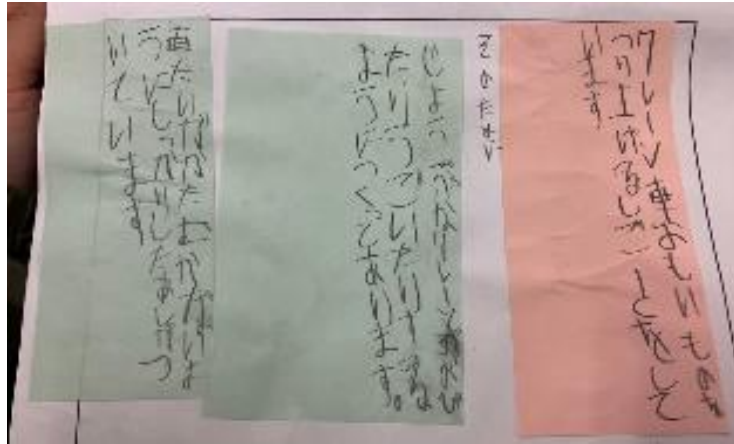 クレーン車おもいものを
つり上げるしごとをして
います
そのために
じょうぶなうでがのび
たりうごいたりするよ
ようにつくってあります。
車たいがかたむかないよ
うにしっかりしたあしがつ
いています